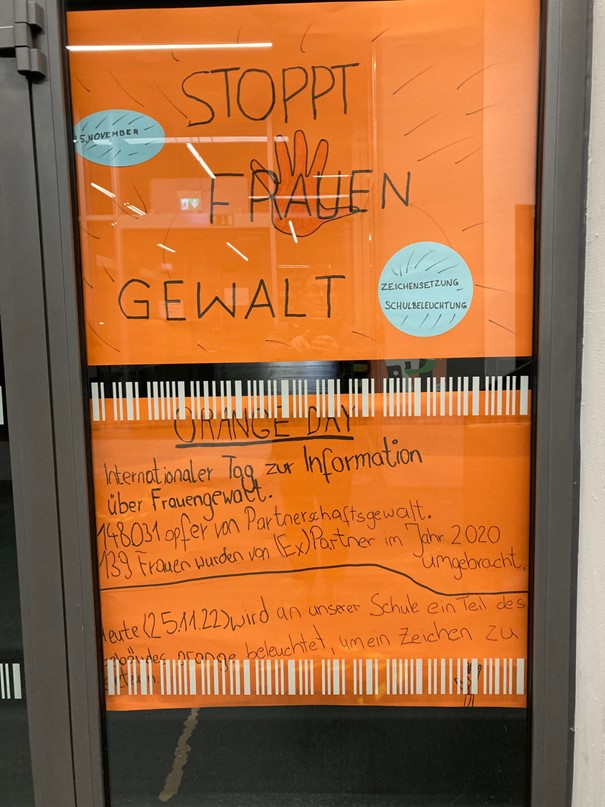 STOPPT
5. NOVEMBER
FRAUEN
GEWALT
ZEICHENSETZUNG
SCHULBELEUCHTUNG
ORANGE DAY
Internationaler Tag zur Information
über Frauengewalt.
148031 opfer von Partnerschaftsgewalt.
139 Frauen wurden von (Ex)Partner im Jahr 2020
umgebracht.
eute (25.11.22) wird an unserer Schule ein Teil des
orange beleuchtet, um ein Zeichen zu